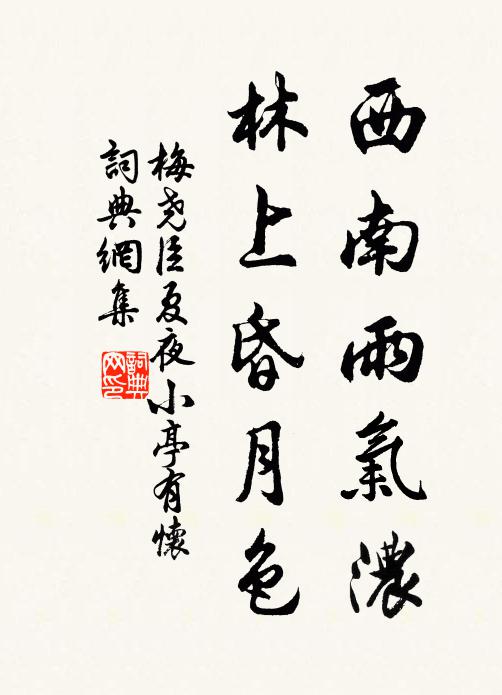 西南雨氣濃
林上昏月色
梅尧臣夏夜小亭有懷
詞典網集
詞典网印